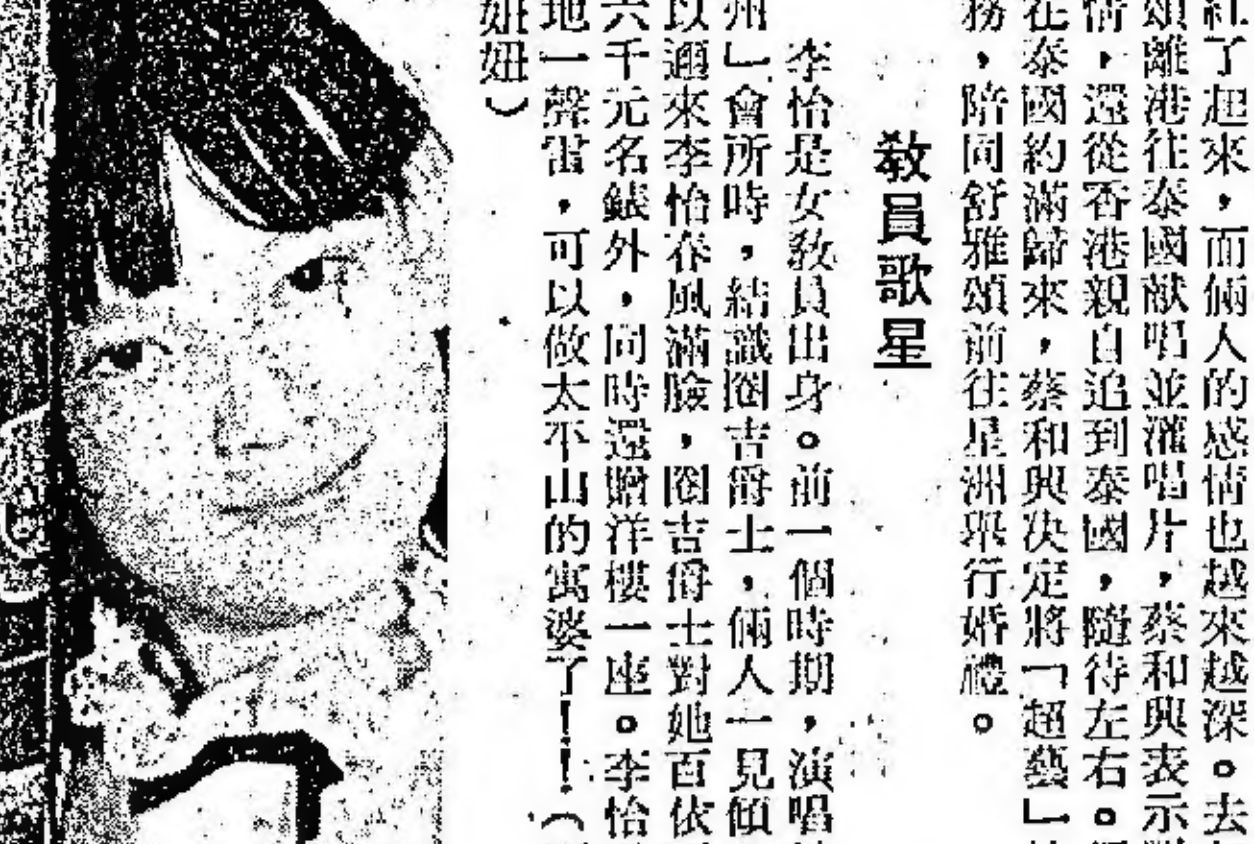 紅了起來，而倆人的感情也越來越深。去
頌離港往泰國献唱並灌唱片，蔡和興表示
情，還從香港親自追到泰國，隨待左右。
在泰國約滿歸來，蔡和興决定將「超藝」
務，陪同舒雅頌前往星洲舉行婚禮。
教員歌星
李怡是女教員出身。前一個時期，演唱
州」會所時，結識囹吉爵士，倆人一見傾
以迴來李怡春風滿臉，囹吉爵士對她百依
六千元名錶外，同時還贈洋樓一座。李怡
地一聲雷，可以做太不山的寓婆了！！（
妞妞）